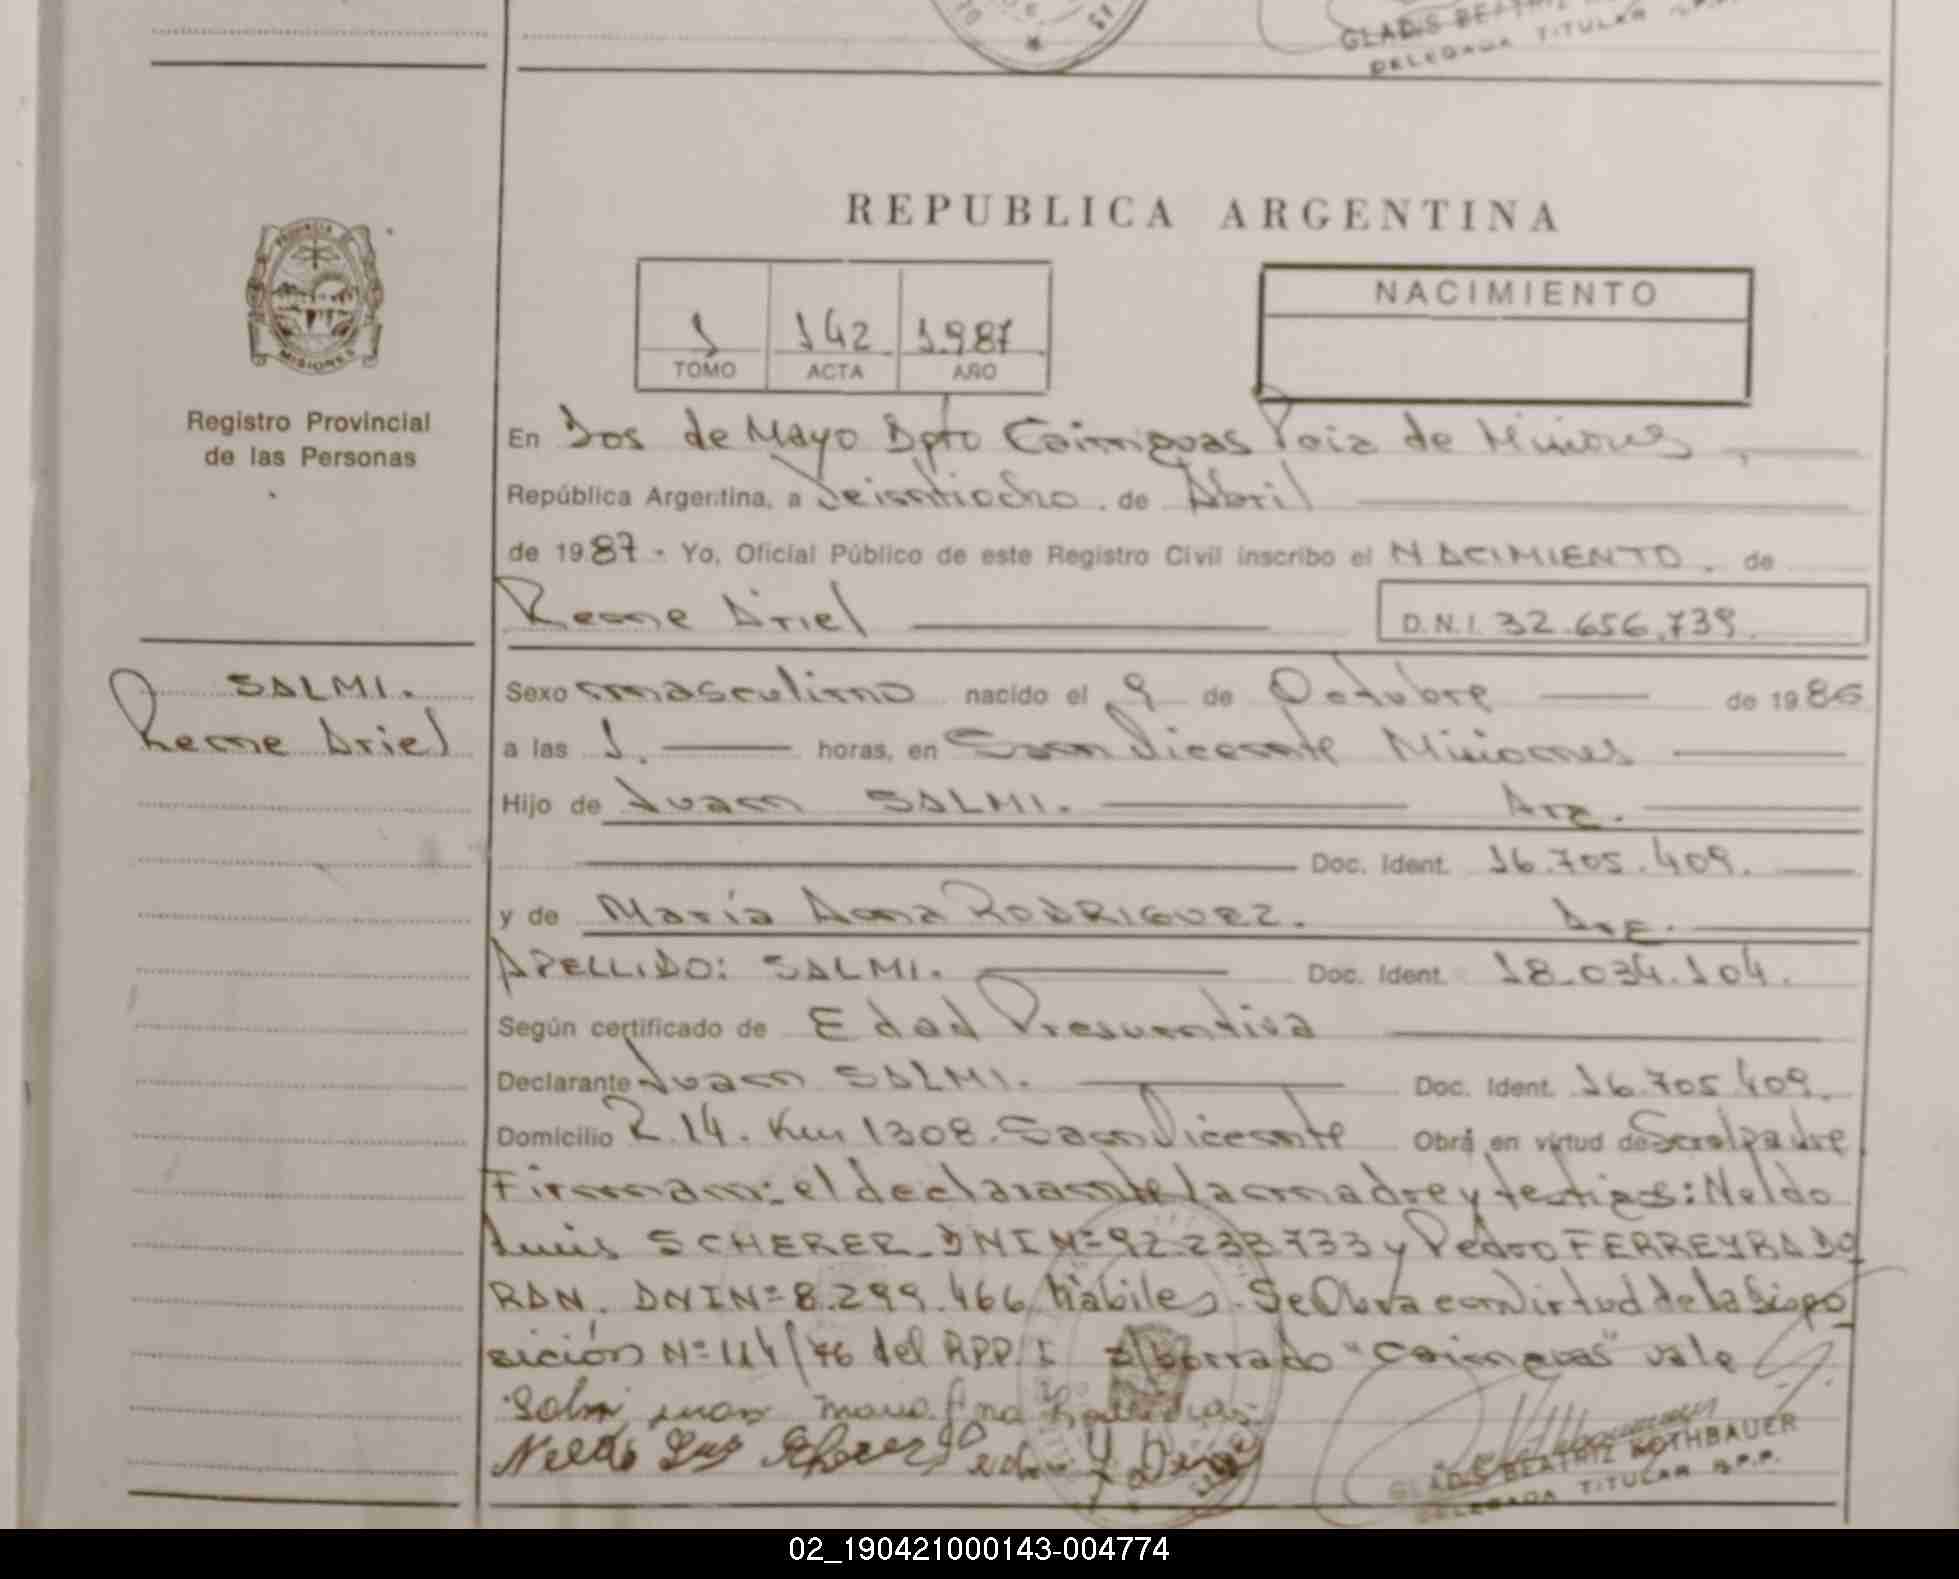 GLADIS BEATRIZ
DELEGADA TITULAR R.P.P.
PROVINCIA DE
MISIONES
Registro Provincial
de las Personas
REPUBLICA ARGENTINA
1 142 1.987
TOMO ACTA AÑO
NACIMIENTO
En Dos de Mayo Dpto Cainguas Pcia de Misiones,
República Argentina, a Veintiocho de Abril
de 1987 - Yo, Oficial Público de este Registro Civil inscribo el NACIMIENTO. de
Rene Ariel
D.N.I. 32.656.739
SALMI.
Rene Ariel
Sexo masculino nacido el 9 de Octubre de 1986
a las 1. horas, en San Vicente Misiones
Hijo de Juan SALMI. Arg.
Doc. Ident. 16.705.409.
y de María Anna RODRIGUEZ. Arg.
APELLIDO: SALMI. Doc. Ident. 18.034.104.
Según certificado de Edad Presuntiva
Declarante Juan SALMI. Doc. Ident. 16.705.409.
Domicilio R.14. Km 1308. San Vicente Obra en virtud de Ser el padre
Firman: el declarante la madre y testigos: Neldo
Luis SCHERER DNI Nº 92.233.733 y Pedro FERREYRA DO
RAN. DNI Nº 8.299.466 hábiles. Se Obra en virtud de la Dispo
sición Nº 114/76 del RPP E/borrado "Cainguas" vale
Salmi Juan
Neldo Luis Scherer
GLADIS BEATRIZ ROTHBAUER
DELEGADA TITULAR R.P.P.
02_190421000143-004774